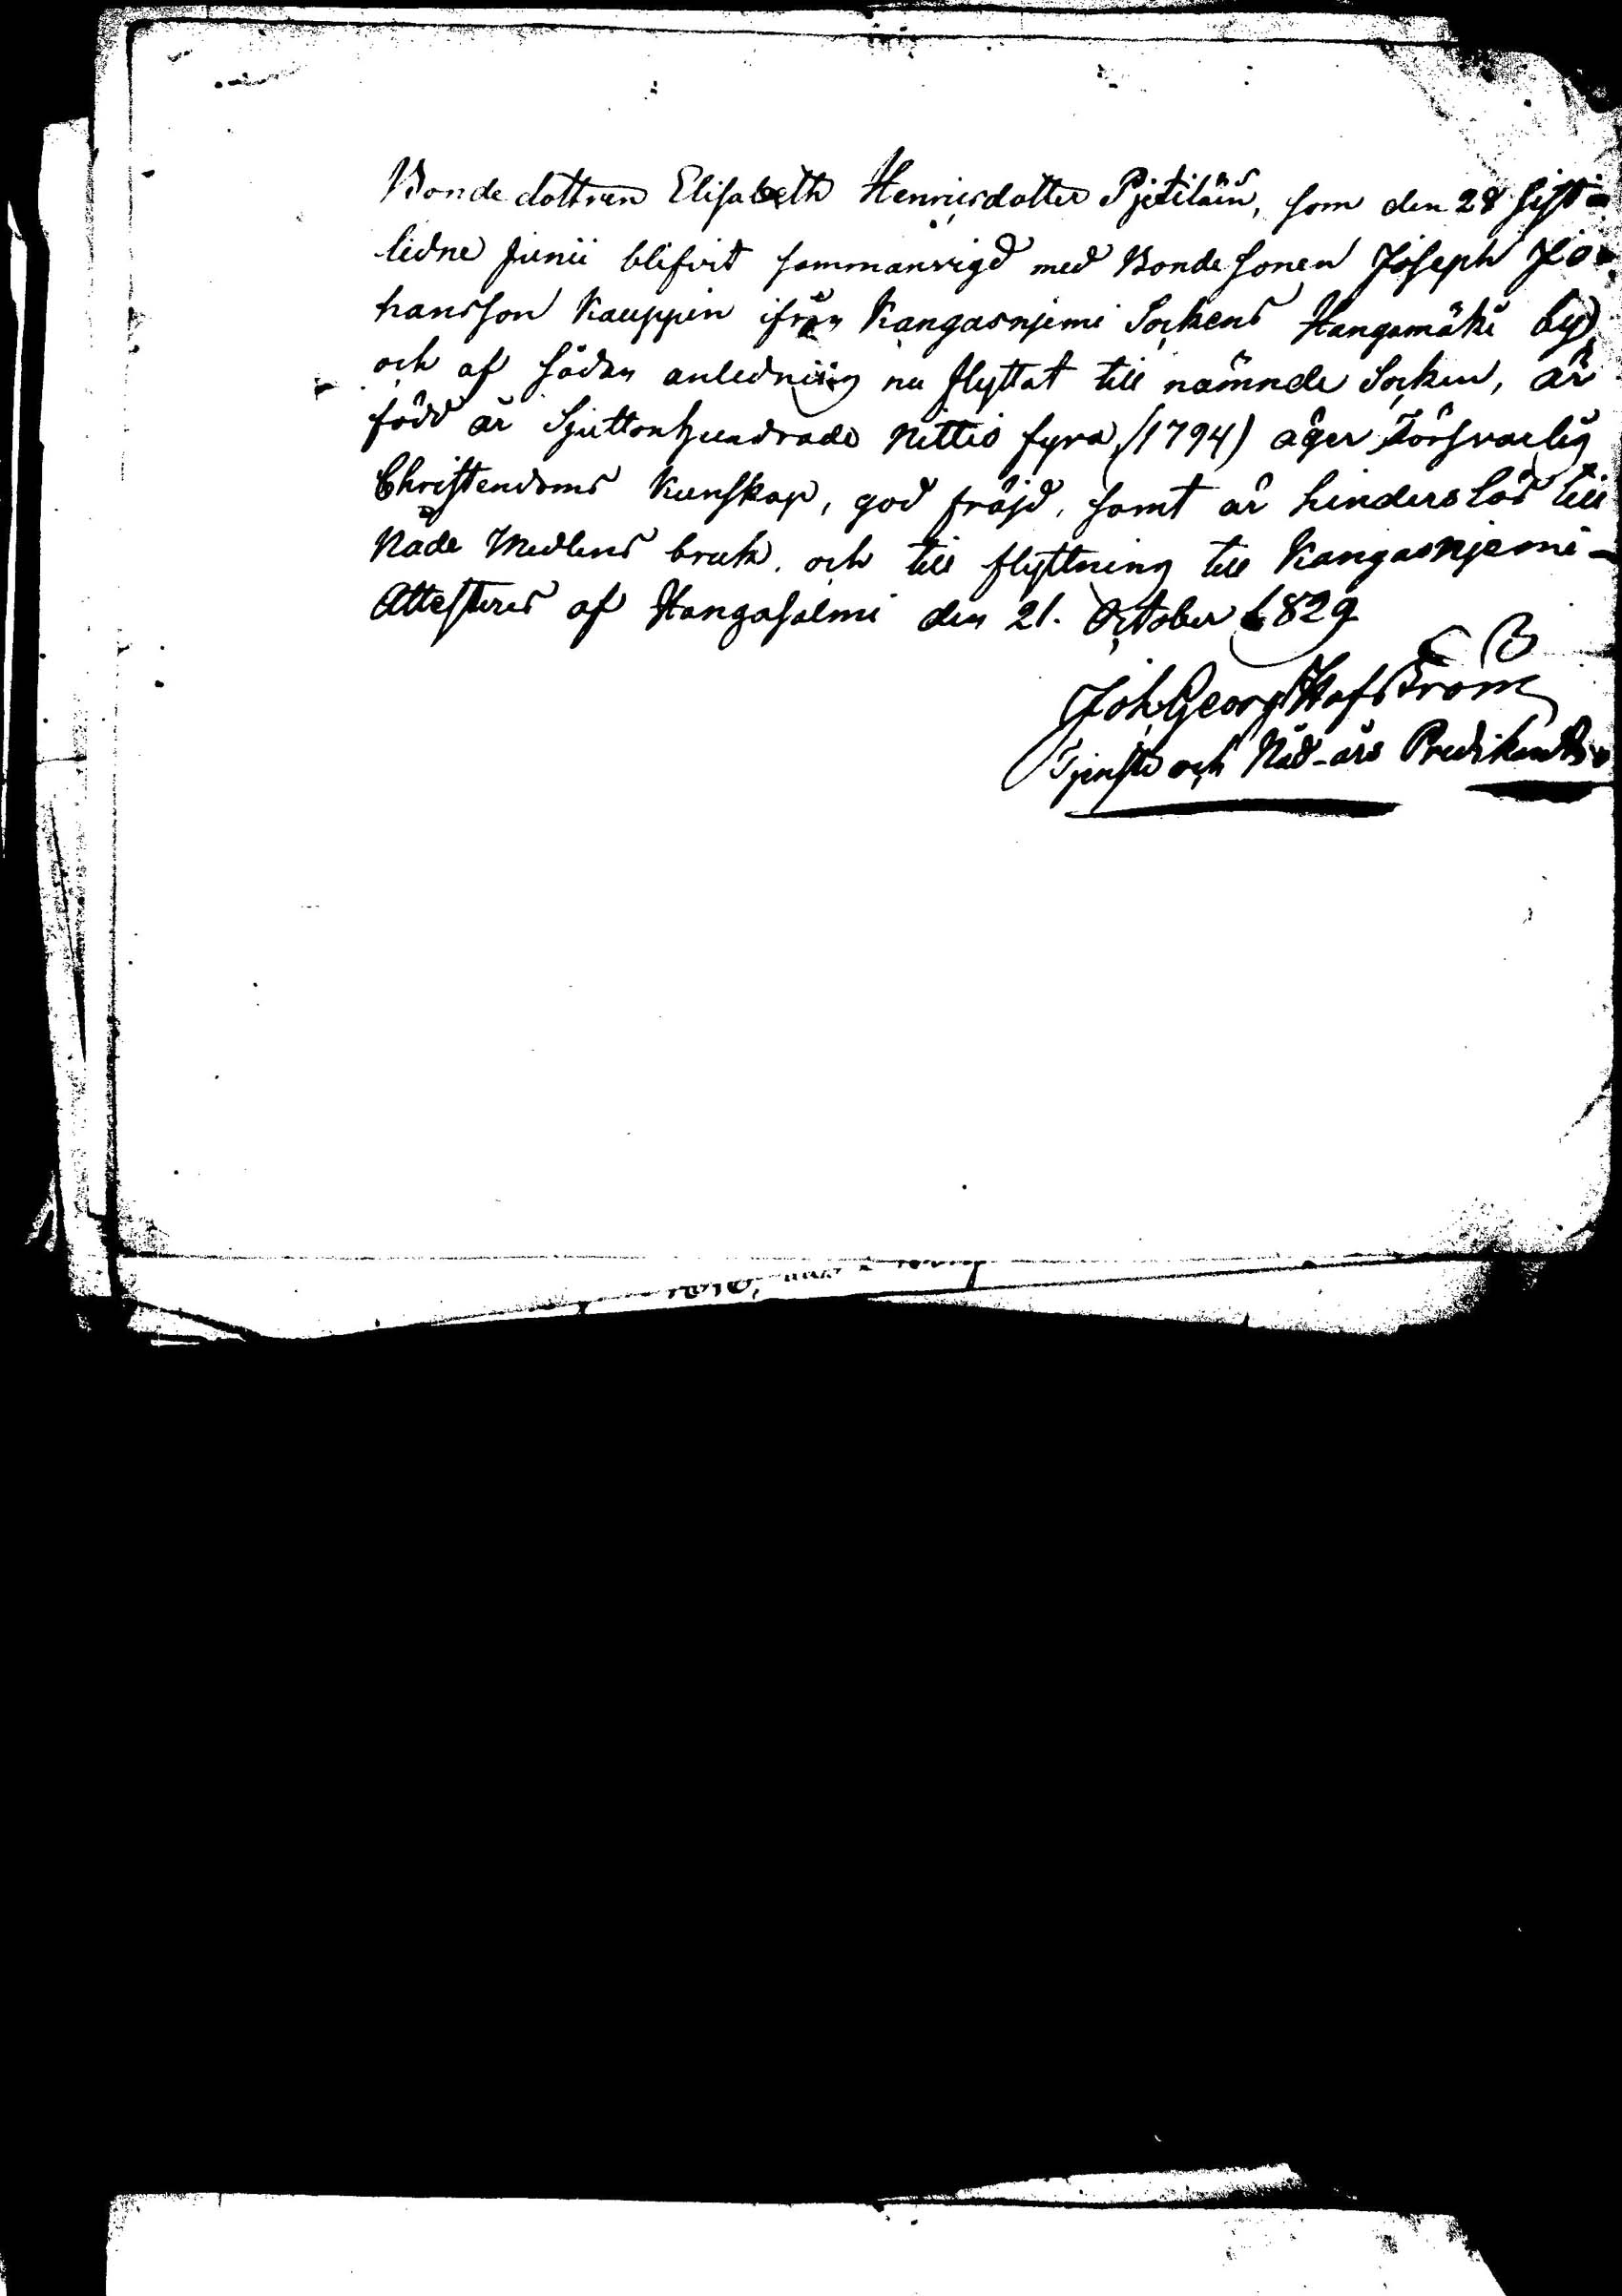 Bonde dottren Elisabeth Henricsdotter Pjetiläin, som den 28 sist-
lidne Junii blifvit sammanvigd med Bonde sonen Joseph Jo-
hansson Kauppin ifrån Kangasnjemi Sockens Hangamäki by,
och af sådan anledning nu flyttat till nämnde Socken, är
född år Sjuttonhundrade Nittio fyra, (1794) äger Försvarlig
Christendoms Kunskap, god fräjd, samt är hinderslös till
Nåde Medlens bruk, och till flyttning till Kangasnjemi -
Attesteres af Hangasalmi den 21. October 1829
Joh Georg Hofström
Tjenste och Nåd-års Predikant